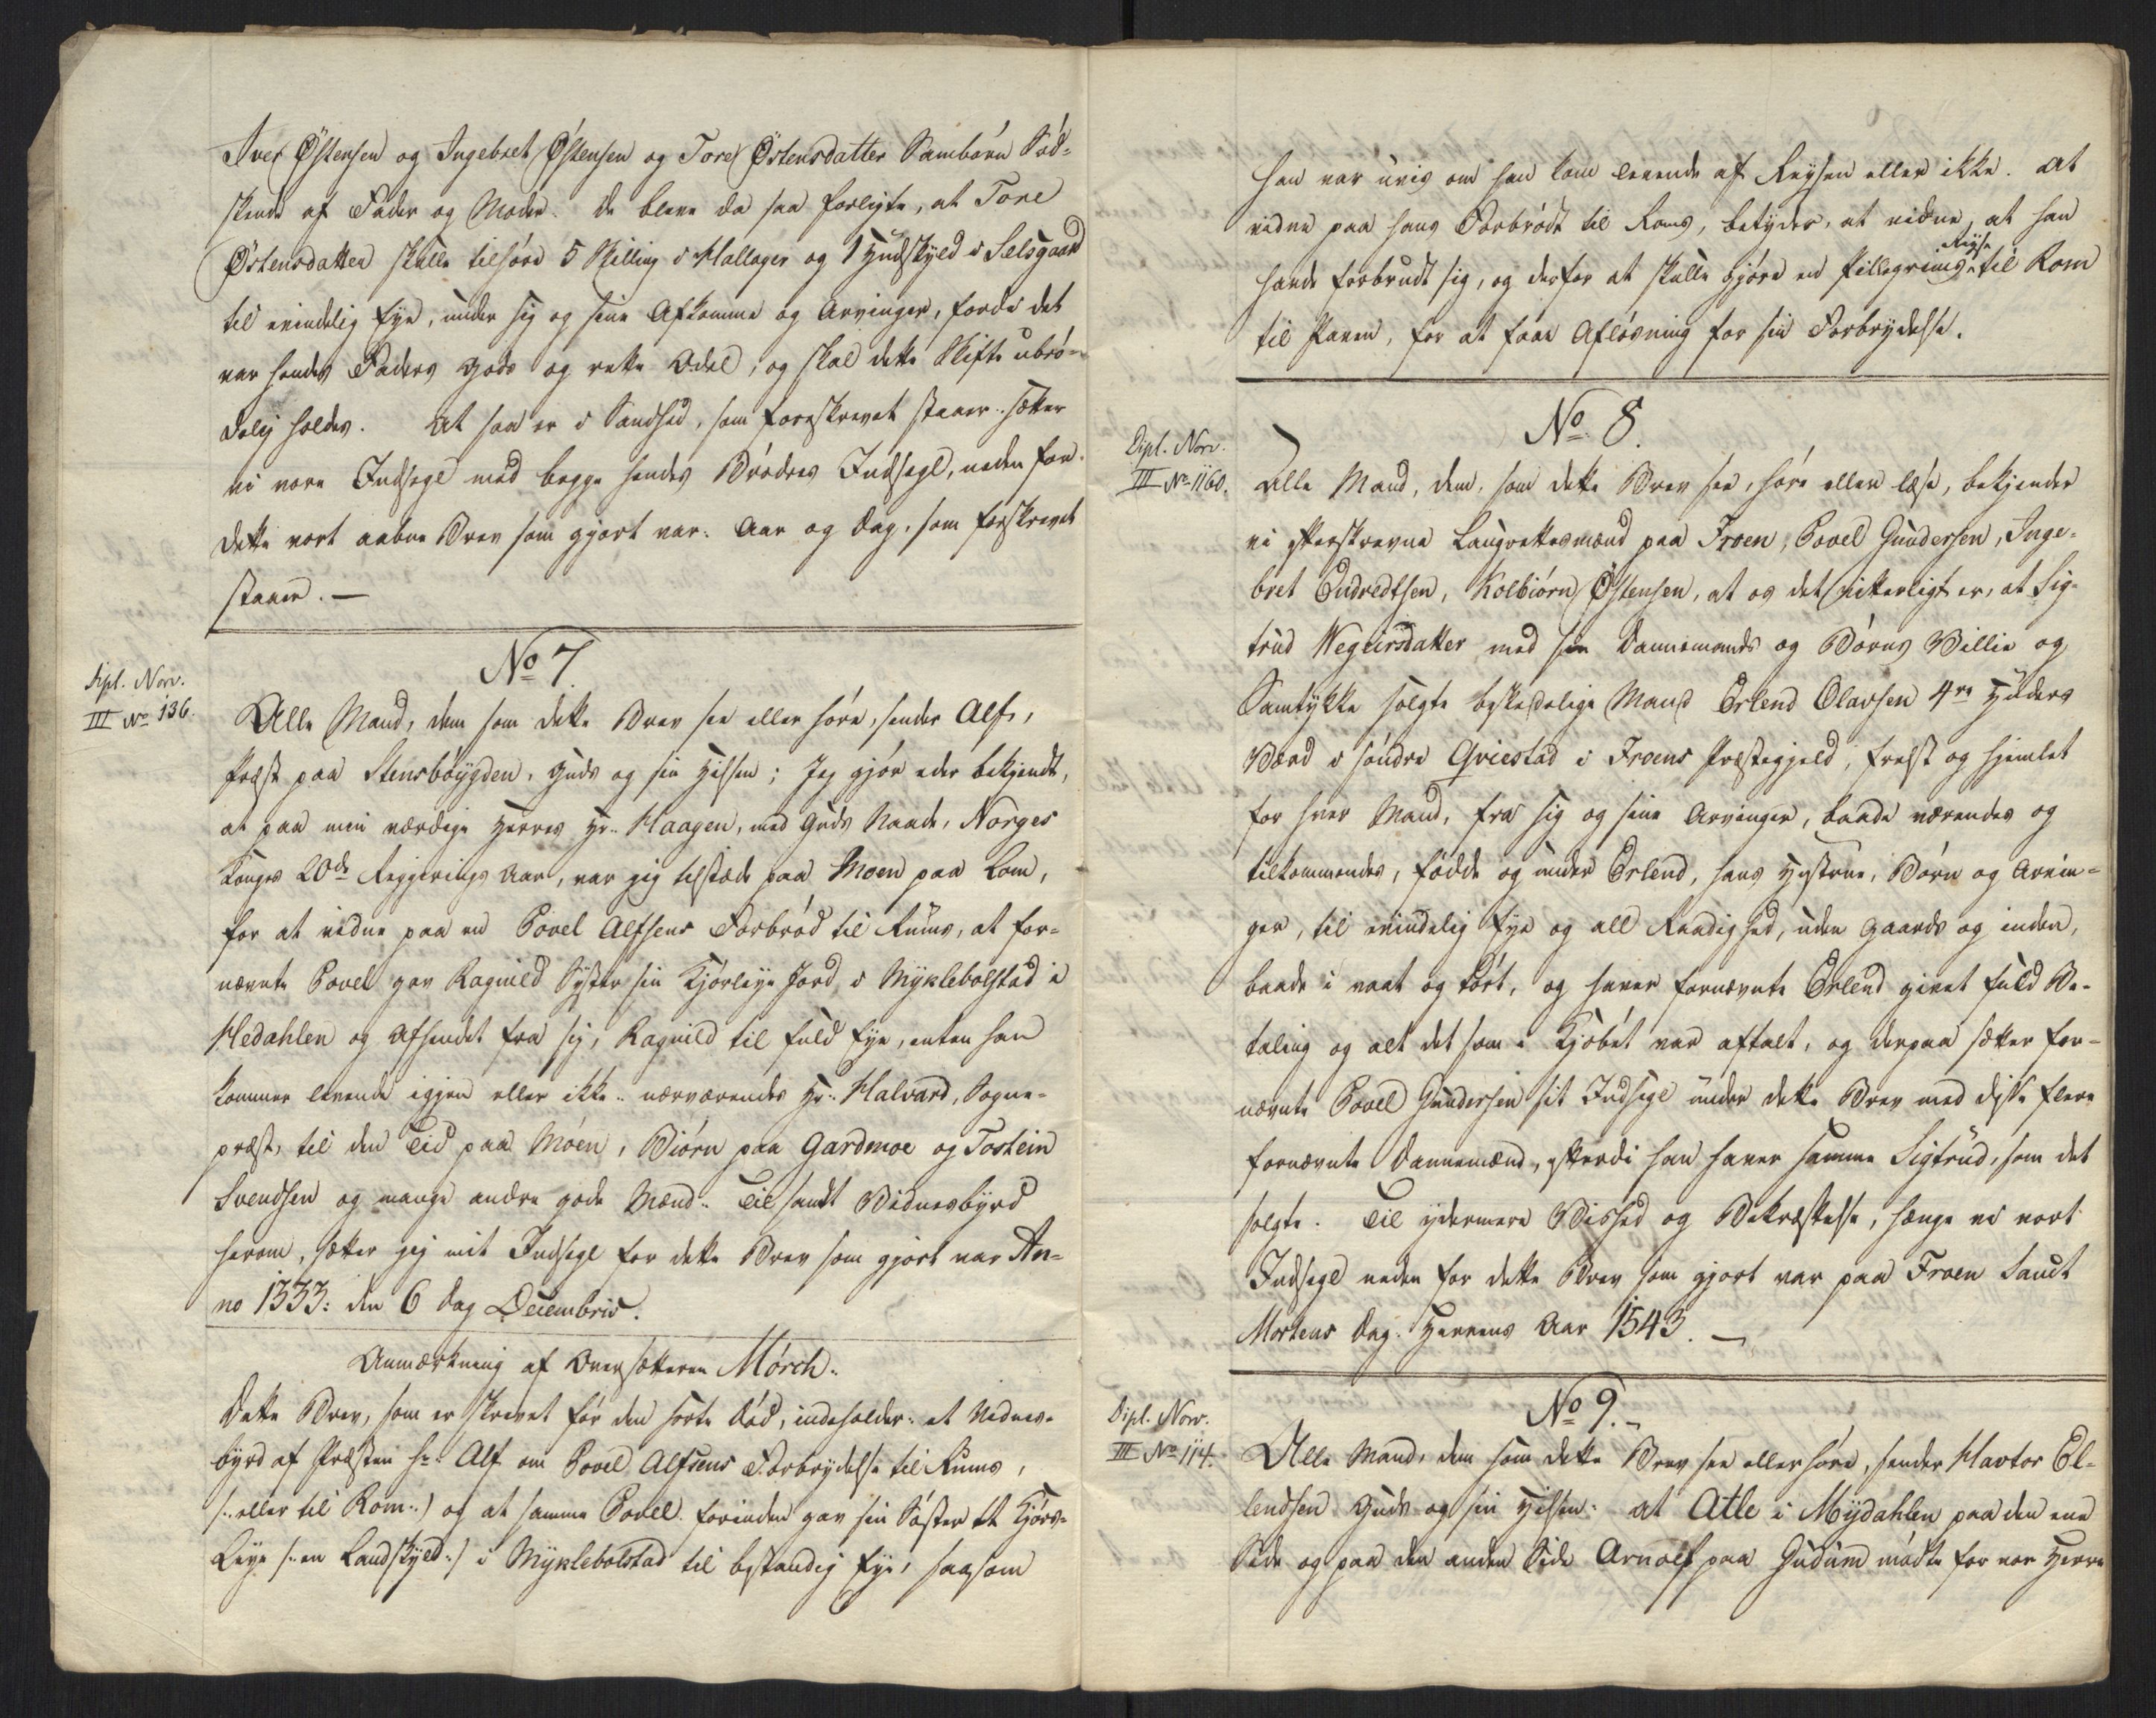 Iver Østensen og Ingebret Østensen og Tore Østensdatter Sambórn Sód-
skende af Fader og Moder. de bleve da saa forligte, at Tore
Østensdatter skulle tilhóre 5 Skilling i Hallager og 1 Hudskyld i Selsgaard
til evindelig Eye, under sig og sine Afkomme og Arvinger, fordi det
var hendes Faders Gods og rette Odel, og skal dette Skifte ubró-
delig holdes. At saa er i Sandhed, som foreskrevet staaer.. sætter
vi vore Indsegl med begge hendes Brødres Indsegl, neden for
dette vort aabne Brev som gjort var: Aar og Dag, som forskrevet
staaer. —
No 7.
Dipl. Norv.
III No 136.
Alle Mand, dem som dette Brev see eller hóre, sender Alf,
Præst paa Stensbóygden, Guds og sin Hilsen; Jeg gjór eder bekjendt,
at paa min værdige Herres Hr.. Haagen, med Guds Naade, Norges
Konges 20de Regjerings Aar, var jeg tilstæde paa Moen paa Lom,
for at vidne paa en Povel Alfsens Forbród til Rums, at for-
nævnte Povel gav Ragnild Syster sin Kjórleye Jord i Myklebolstad i
Hedahlen og afhendet fra sig, Ragnild til fuld Eye, enten han
kommer levende igjen eller ikke.. nærværendes Hr.. Halvard, Sogne-
præst, til den Tid paa Móen, Biórn paa Gardmoe og Tostein
Svendsen og mange andre gode Mænd.. Til sandt Vidnesbyrd
herom, sætter jeg mit Indsegl for dette Brev som gjort var An-
no 1333: den 6 Dag Decembris.
Anmærkning af Oversætteren Mórch..
Dette Brev, som er skrevet fór den sorte Dód, indeholder: et Vidnes-
byrd af Præsten Hr: Alf om Povel Alfsens Forbrydelse til Rums,
/:eller til Rom:/ og at samme Povel forinden gav sin Sóster et Kjórs-
Leye /:en Landskyld:/ i Myklebolstad til bestandig Eye, saasom
han var uvis om han kom levende af Reysen eller ikke. At
vidne paa hans Forbródt til Roms, betyder, at vidne, at han
havde forbrudt sig, og derfor at skulle gjóre en Pillegrims Reyse til Rom
til Paven, for at faae Aflósning for sin Forbrydelse.
No 8.
Dipl. Norv.
III No 1160.
Alle Mand, dem, som dette Brev see, hóre eller læse, bekjender
vi efterskrevne Laugrettesmænd paa Froen, Povel Gundersen, Inge-
bret Endredtsen, Kolbiórn Østensen, at os det vitterligt er, at Sig-
trud Wegursdatter med sin Dannemands og Bórns Villie og
Samtykke solgte beskedelige Mand Erlend Olavsen 4re Huders
Værd i sóndre Qviestad i Froens Præstegjeld, frelst og hjemlet
for hver Mand, fra sig og sine Arvinger, baade værendes og
tilkommendes, fódde og under Erlend, hans Hustrue, Bórn og Arvin-
ger, til evindelig Eye og all Raadighed, uden Gaards og inden,
baade i vaat og tórt, og haver fornævnte Erlend givet fuld Be-
taling og alt det som i Kjóbet var aftalt, og derpaa sætter for-
nævnte Povel Gundersen sit Indsegl under dette Brev med diste flere
fornævnte Dannemænd, efterdi han haver samme Sigtrud, som det
solgte. Til ydermere Vished og Bekræftelse, hænge vi vort
Indsegl neden for dette Brev som gjort var paa Froen Sanct
Mortens Dag. Herrens Aar 1543. —
No 9.
Dipl. Norv.
III No 114.
Alle Mand, dem som dette Brev see eller hóre, sender Havtor El-
lendsen Guds og sin Hilsen: at Atle i Mydahlen paa den ene
Side og paa den anden Side Arnolf paa Gudum módte for vor Herre